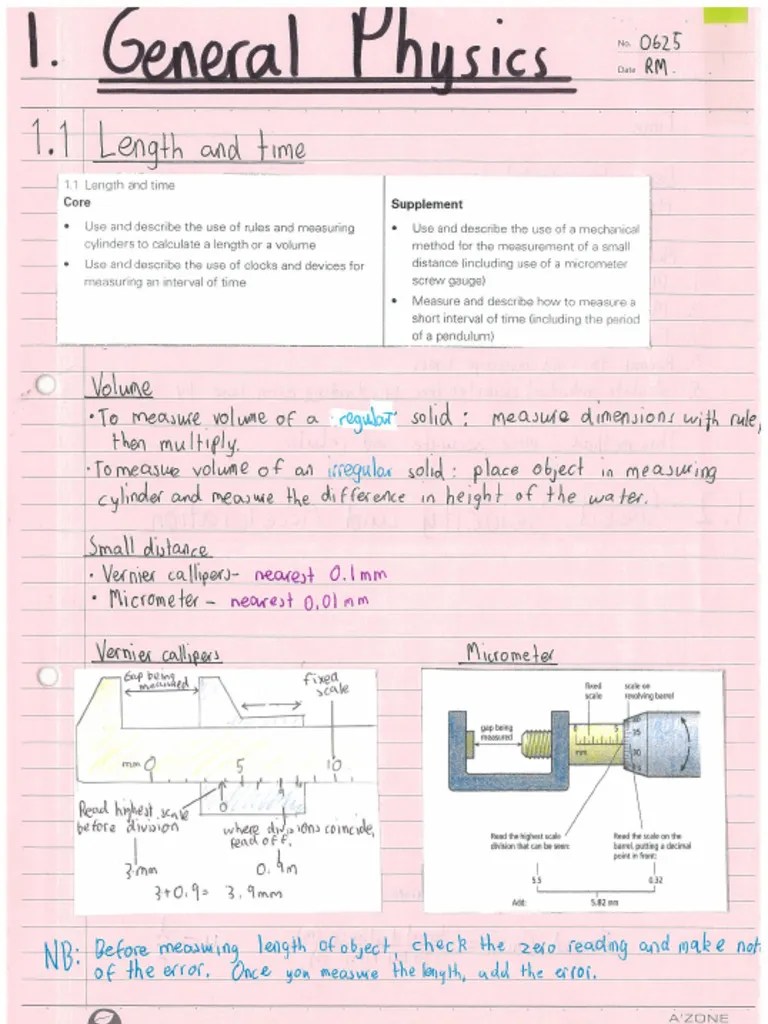 1. General Physics
No. 0625
Date RM.
1.1 Length and time
1.1 Length and time
Core
• Use and describe the use of rules and measuring
cylinders to calculate a length or a volume
• Use and describe the use of clocks and devices for
measuring an interval of time
Supplement
• Use and describe the use of a mechanical
method for the measurement of a small
distance (including use of a micrometer
screw gauge)
• Measure and describe how to measure a
short interval of time (including the period
of a pendulum)
Volume
• To measure volume of a regular solid: measure dimensions with rule,
then multiply.
• To measure volume of an irregular solid: place object in measuring
cylinder and measure the difference in height of the water.
Small distance
• Vernier callipers - nearest 0.1mm
• Micrometer - nearest 0.01mm
Vernier callipers
Gap being
measured
fixed
scale
mm 0 5 10
0
Read highest scale
before division
where divisions coincide,
read off.
3mm
0.9m
3+0.9= 3.9mm
Micrometer
fixed
scale
scale on
revolving barrel
gap being
measured
0 5
mm
40
35
30
Read the highest scale
division that can be seen:
Read the scale on the
barrel, putting a decimal
point in front:
5.5
0.32
Add: 5.82 mm
NB: Before measuring length of object, check the zero reading and make not
of the error. Once you measure the length, add the error.
A'ZONE